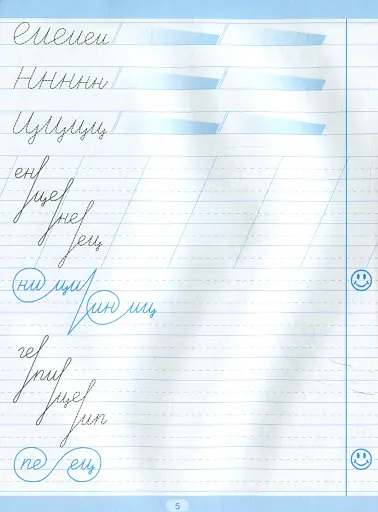 еиеиеи
ннннн
цццц
ен
це
не
ец
ни ци
ин иц
пи
це
ип
пе ец
5